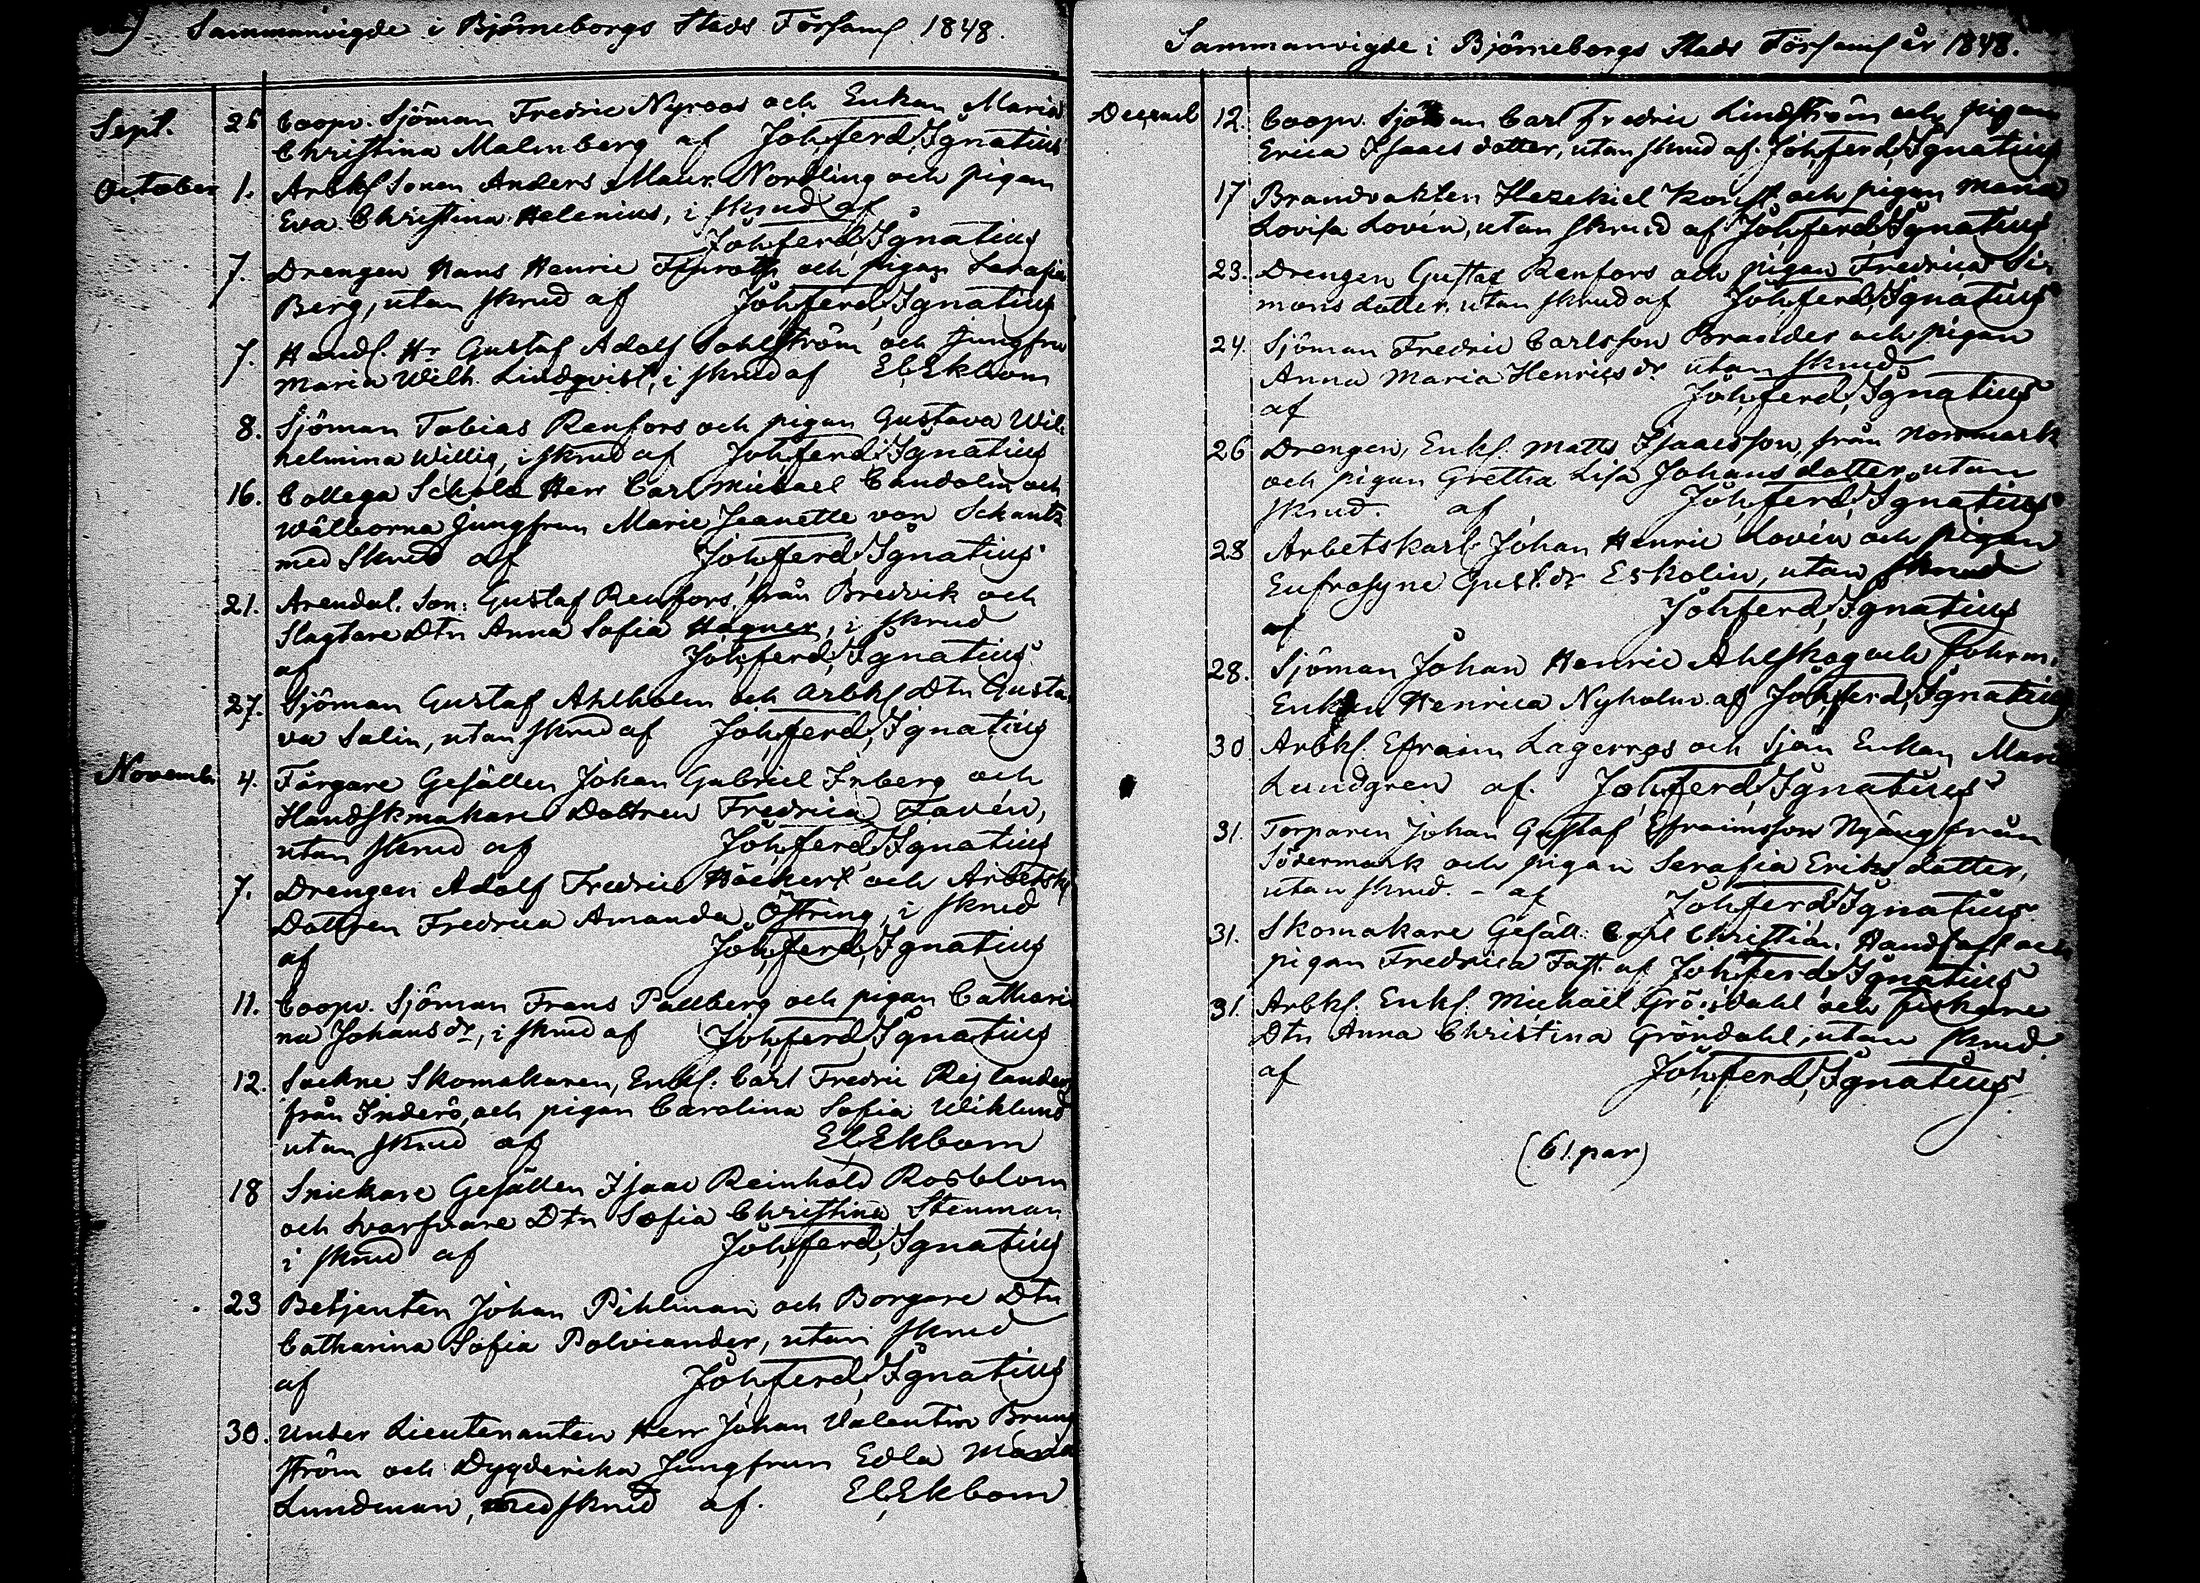 Sammanvigde i Björneborgs Stads Församl 1848.
Sept. 25 Coopv. Sjöman Fredric Nyroos och Enkan Maria
Christina Malmberg af Joh, ferd, Ignatius
October 1. Arbkl Sonen Anders Maur. Nordling och pigan
Eva Christina Helenius, i skrud af
Joh, ferd, Ignatius
7. Drengen Hans Henric och pigan Serafia
Berg, utan skrud af Joh, ferd, Ignatius
7. Handl. Hr Gustaf Adolf Sohlström och Jungfru
Maria Wilh. Lindqvist, i skrud af El, Ekbom
8. Sjöman Tobias Renfors och pigan Gustava Wil-
helmina Willig, i skrud af Joh, ferd, Ignatius
16. Collega Scholæ Herr Carl Michael Candolin och
Wälborna Jungfrun Marie Jeanette von Schantz
med Skrud af Joh, ferd, Ignatius
21. Arendat. Son. Gustaf Renfors från Bredvik och
Slagtare Dtn Anna Sofia Hagner, i skrud
af Joh, ferd, Ignatius
27. Sjöman Gustaf Ahlholm och Arbkl Dtn Gusta-
va Salin, utan skrud af Joh, ferd, Ignatius
Novemb 4. Färgare Gesällen Johan Gabriel Inberg och
Handskmakare Dottren Fredrica Favén,
utan skrud af Joh, ferd, Ignatius
7. Drengen Adolf Fredric Höckert och Arbetsk
Dottren Fredrica Amanda Östring, i skrud
af Joh, ferd, Ignatius
11. Coopv. Sjöman Frans Pallberg och pigan Cathari-
na Johansdr, i skrud af Joh, ferd, Ignatius
12. Sockne Skomakaren, Enkl. Carl Fredric
från Inderö, och pigan Carolina Sofia Wiklund
utan skrud af El, Ekbom
18 Snickare Gesällen Isaac Reinhold Rosblom
och Svarfvare Dtn Sofia Christina Stenman
i skrud af Joh, ferd, Ignatius
23 Betjenten Johan Pihlman och Borgare Dtn
Catharina Sofia Polviander, utan skrud
af Joh, ferd, Ignatius
30. Under Lieutenanten Herr Johan Valentin Brun
ström och Dygderika Jungfrun Edla Maria
Lundman, med skrud af. El, Ekbom
Sammanvigde i Björneborgs Stads Församl år 1848.
Decemb 12. Coopv. Sjöman Carl Fredric Lindström och pigan
Erica Isaacs dotter, utan skrud af. Joh, ferd, Ignatius
17 Brandvakten Hezekiel Konst och pigan Maria
Lovisa Lovén, utan skrud af Joh, ferd, Ignatius
23. Drengen Gustaf Renfors och pigan Fredrica Si-
mons dotter, utan skrud af Joh, ferd, Ignatius
24. Sjöman Fredric Carlsson Brander och pigan
Anna Maria Henricsdr utan skrud
af Joh, ferd, Ignatius
26 Drengen, Enkl. Matts Isaacsson, från Norrmark
och pigan Gretha Lisa Johans dotter, utan
skrud. af Joh, ferd, Ignatius
28 Arbetskarl Johan Henric Lovén och pigan
Eufrosyne Gust.dr Eskolin, utan skrud
af Joh, ferd, Ignatius
28. Sjöman Johan Henric Ahlskog och Form.
Enkan Henrica Nyholm af Joh, ferd, Ignatius
30 Arbkl. Efraim Lagerroos och Sjöm Enkan Maria
Lundgren af. Joh, ferd, Ignatius
31. Torparen Johan Gustaf Efraimsson Nygång från
Södermark och pigan Serafia Eriks dotter,
utan skrud. - af Joh, ferd, Ignatius
31. Skomakare Gesäll. Carl Christian. Handfast och
pigan Fredrica Fast. af Joh, ferd, Ignatius
31. Arbkl. Enkl. Michaël Gröndahl och fiskare
Dtn Anna Christina Gröndahl, utan skrud.
af Joh, ferd, Ignatius
(61. par)